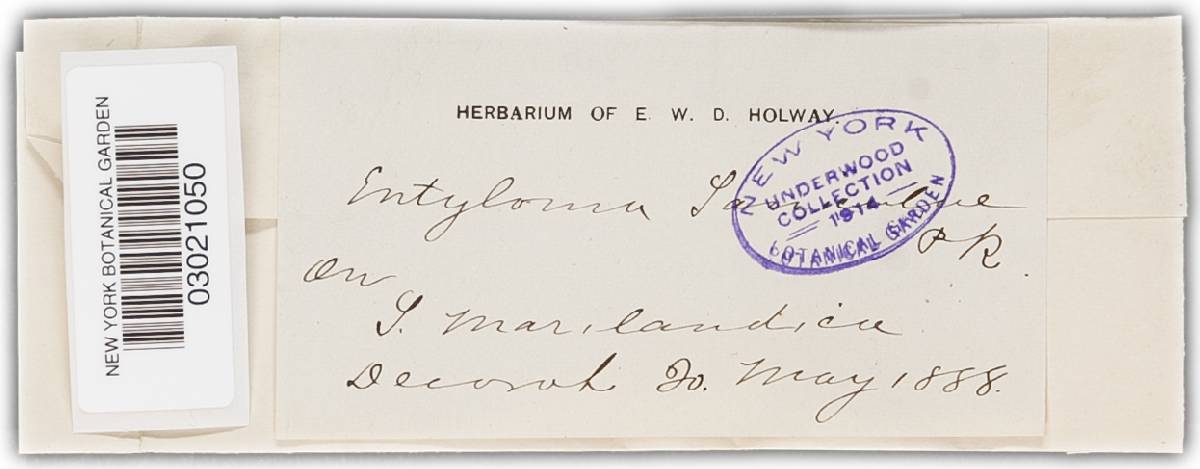 NEW YORK BOTANICAL GARDEN
03021050
HERBARIUM OF E. W. D. HOLWAY.
NEW YORK
UNDERWOOD
COLLECTION
1914
BOTANICAL GARDEN
Entyloma Saniculae
Pk.
on
S. Marilandica
Decorah Io. May 1888.